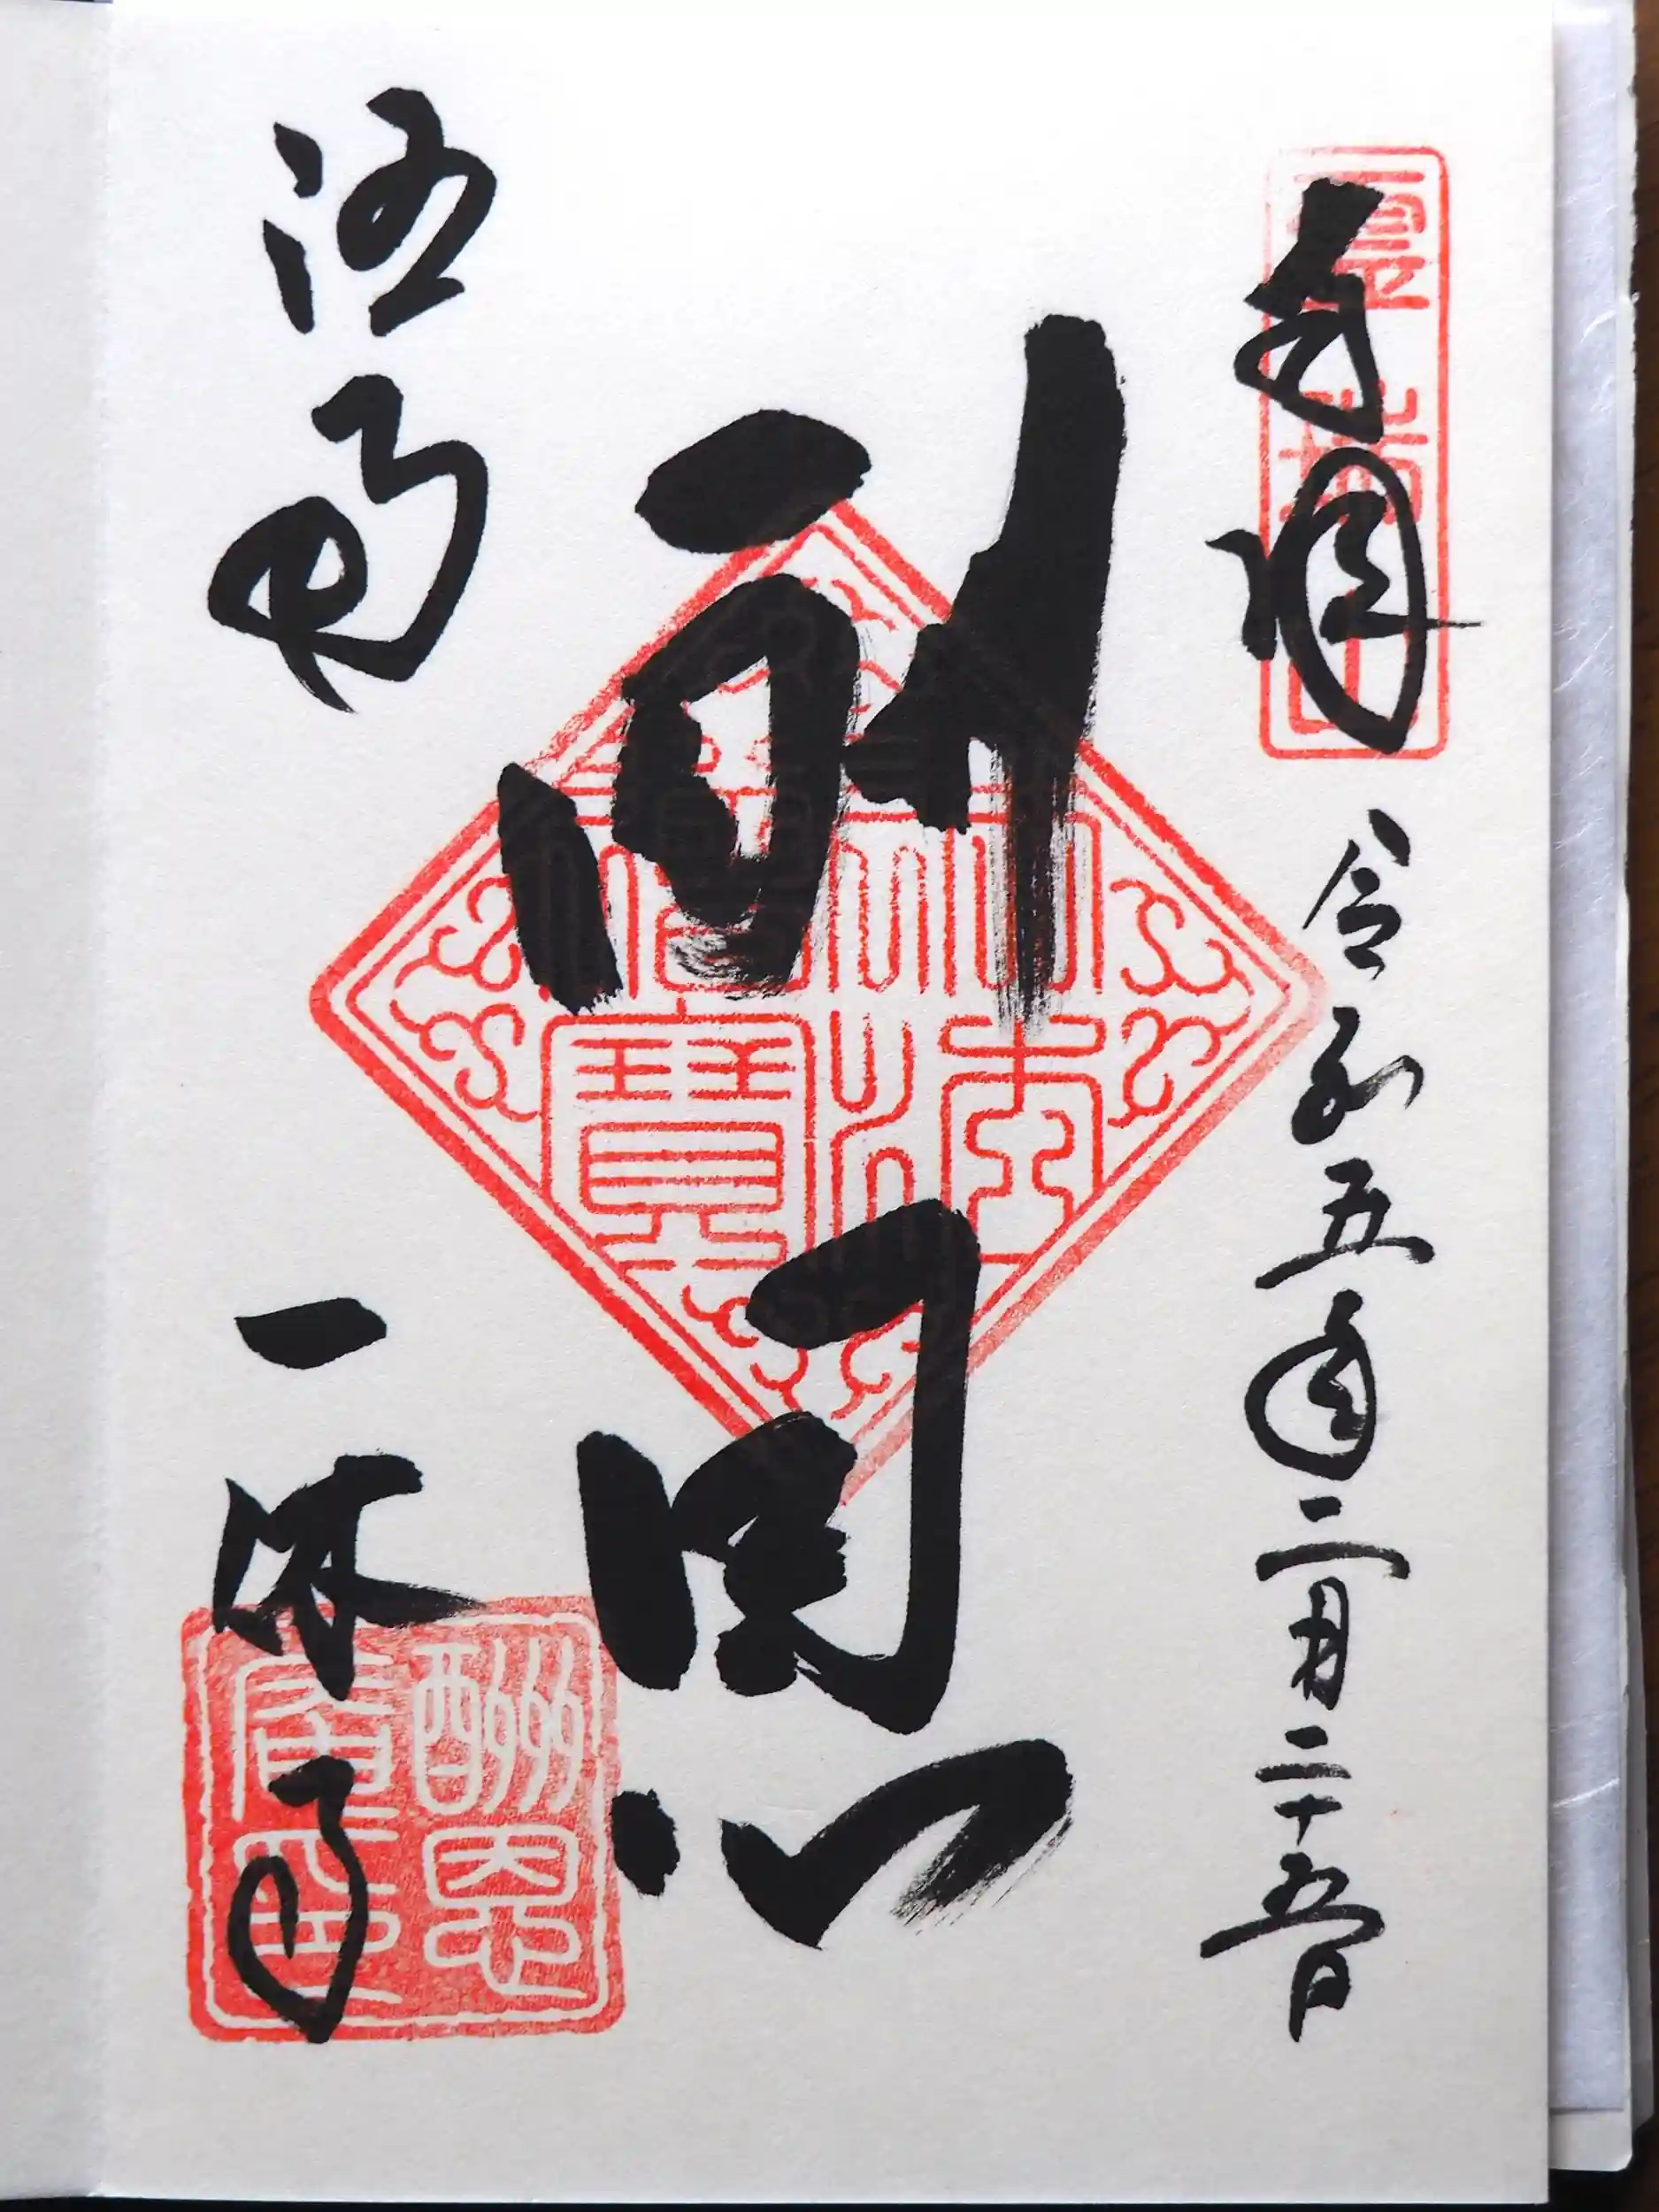 奉拝
令和五年二月二十五日
酬恩
洛南
一休寺
佛法僧寶
酬恩庵印